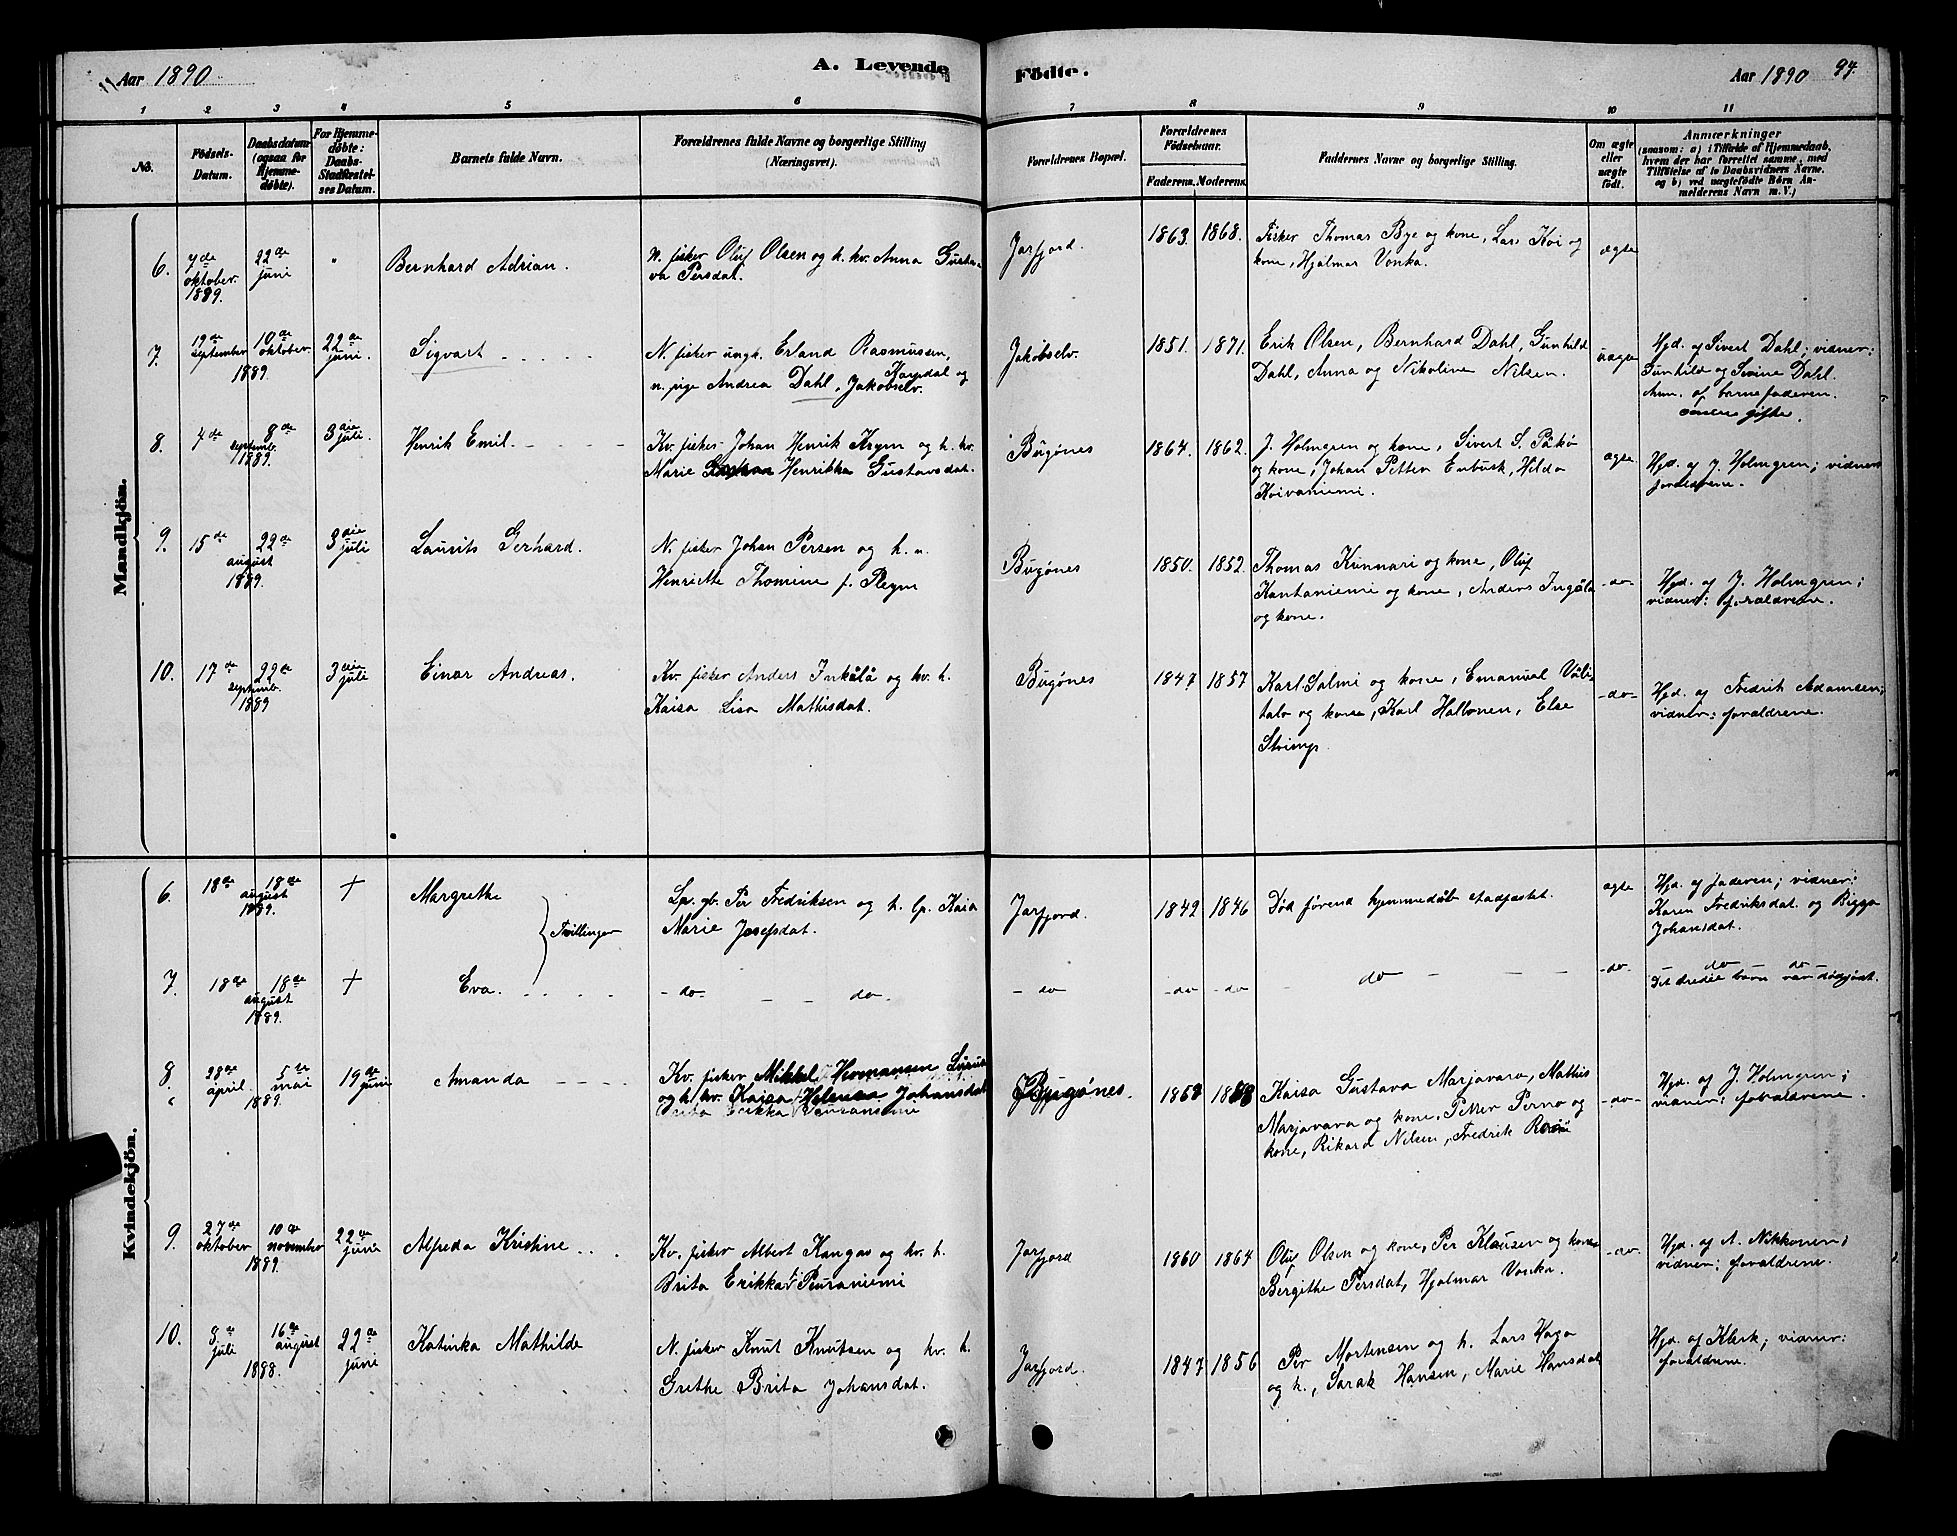 Aar 1890
A. Levende Födte.
Aar 1890
94.
1 2 3 4 5 6 7 8 9 10 11
No.
Födsels-Datum.
Daabsdatum (ogsaa for Hjemme-döbte).
For Hjemme-döbte: Daabs-Stadfæstel-ses Datum.
Barnets fulde Navn.
Forældrenes fulde Navne og borgerlige Stilling (Næringsvei).
Forældrenes Bopæl.
Forældrenes Födselsaar.
Faderens. Moderens.
Faddernes Navne og borgerlige Stilling.
Om ægte eller uægte födt.
Anmærkninger
(saasom: a) i Tilfælde af Hjemmedaab, hvem der har forrettet samme, med Tilföielse af to Daabsvidners Navne, og b) ved uægtefödte Börn An-melderens Navn m. V.)
Mandkjön.
6. 7de oktober 1889. 22de juni " Bernhard Adrian. N. fisker Oluf Olsen og h. kv. Anna Gustava Persdat. Jarfjord. 1863. 1868. Fisker Thomas Bye og kone, Lars Koi og kone, Hjalmar Vonka. ægte
7. 19de september 10de oktober 1889. 22de juni. Sigvart N. fisker ungk. Erland Rasmussen, Karpdal og n. pige Andrea Dahl, Jakobselv. Jakobselv. 1851. 1871. Erik Olsen, Bernhard Dahl, Gunhild Dahl, Anna og Nikoline Nilsen. uægte Hjd. af Sivert Dahl; vidner: Gunhild og Sevine Dahl. Anm. af barnefaderen.
8. 4de 8de septemb. 1889. 3die juli. Henrik Emil. Kv. fisker Johan Henrik Reym og h. kv. Marie Henrikka Gustavsdat. Bugönes 1864. 1862. J. Holmgren og kone, Sivert S. Påkö og kone, Johan Petter Enbusk, Hilda Koivaniemi. ægte Hjd. af J. Holmgren; vidner forældrene.
9. 15de 22de august 1889. 3die juli Laurits Gerhard. N. fisker Johan Persen og h. n. Henriette Thomine f. Reym Bugönes 1850. 1852. Thomas Kunnari og kone, Oluf Kantaniemi og kone, Anders Ingålå og kone. -do- Hjd. af J. Holmgren; vidner: forældrene.
10. 17de 22de septemb. 1889 3die juli Einar Andreas. Kv. fisker Anders Inkålå og kv. h. Kaisa Lisa Mathisdat. Bugönes 1847 1857 Karl Salmi og kone, Emanuel Välitalo og kone, Karl Hallonen, Else Strimp. -do- Hjd. af Fredrik Adamsen; vidner: forældrene.
Kvindekjön.
6. 18de 18de august 1889. + Margrethe Lp. gb. Per Fredriksen og h. lp. Kaia Marie Josefsdat. Jarfjord. 1842 1846 Död förend hjemmedåb stadfæstet. ægte Hjd. af faderen; vidner: Karen Fredriksdat. og Bigga Johansdat.
Tvillinger
7. 18de 18de august 1889. + Eva. -do- - - do - do -do- -do do - - - -do- - do - do - Det tredie barn var dødfödt.
8. 28de april 5te mai 1889. 19de juni Amanda Kv. fisker Mikkel Hermansen og h. kv. Kaisa Helena Johansdat Brita Erikka Peuraniemi Bugönes. Kaisa Gustava Marjavara, Mathis Marjavara og kone, Petter Perno og kone, Rikard Nilsen, Fredrik -do- Hjd. af J. Holmgren; vidner: forældrene.
9. 27de oktober 10de november 1889. 22de juni Alfreda Kristine Kv. fisker Albert Kangas og kv. h. Brita Erikka Peuraniemi Jarfjord 1860 1864 Oluf Olsen og kone, Per Klausen og kone Bergithe Persdat, Hjalmar Vonka. -do- Hjd. af A. Nikkonen; vidner: forældrene.
10. 8de juli 16de august 1888. 22de juni Katinka Mathilde N. fisker Knut Knutsen og kv. h. Grethe Brita Johansdat. Jarfjord. 1847 1856 Per Mortensen og h. Lars Haga og h., Sarak Hansen, Marie Hansdat Hjd. af Klerk; vidner: forældrene.